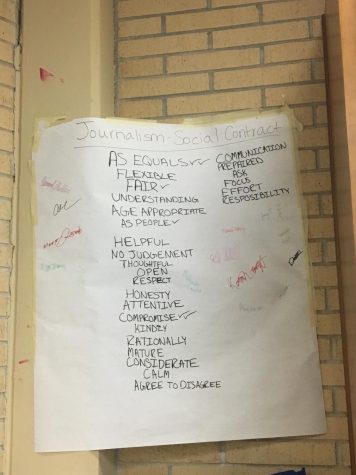 Journalism-Social Contract
AS EQUALS ✓✓
FLEXIBLE
FAIR ✓
UNDERSTANDING
AGE APPROPRIATE
AS PEOPLE ✓
HELPFUL
NO JUDGEMENT
THOUGHTFUL
OPEN
RESPECT
HONESTY
ATTENTIVE
COMPROMISE ✓✓
KINDLY
RATIONALLY
MATURE
CONSIDERATE
CALM
AGREE TO DISAGREE
COMMUNICATION
PREPAIRED
ASK
FOCUS
EFFORT
RESPOSIBILITY